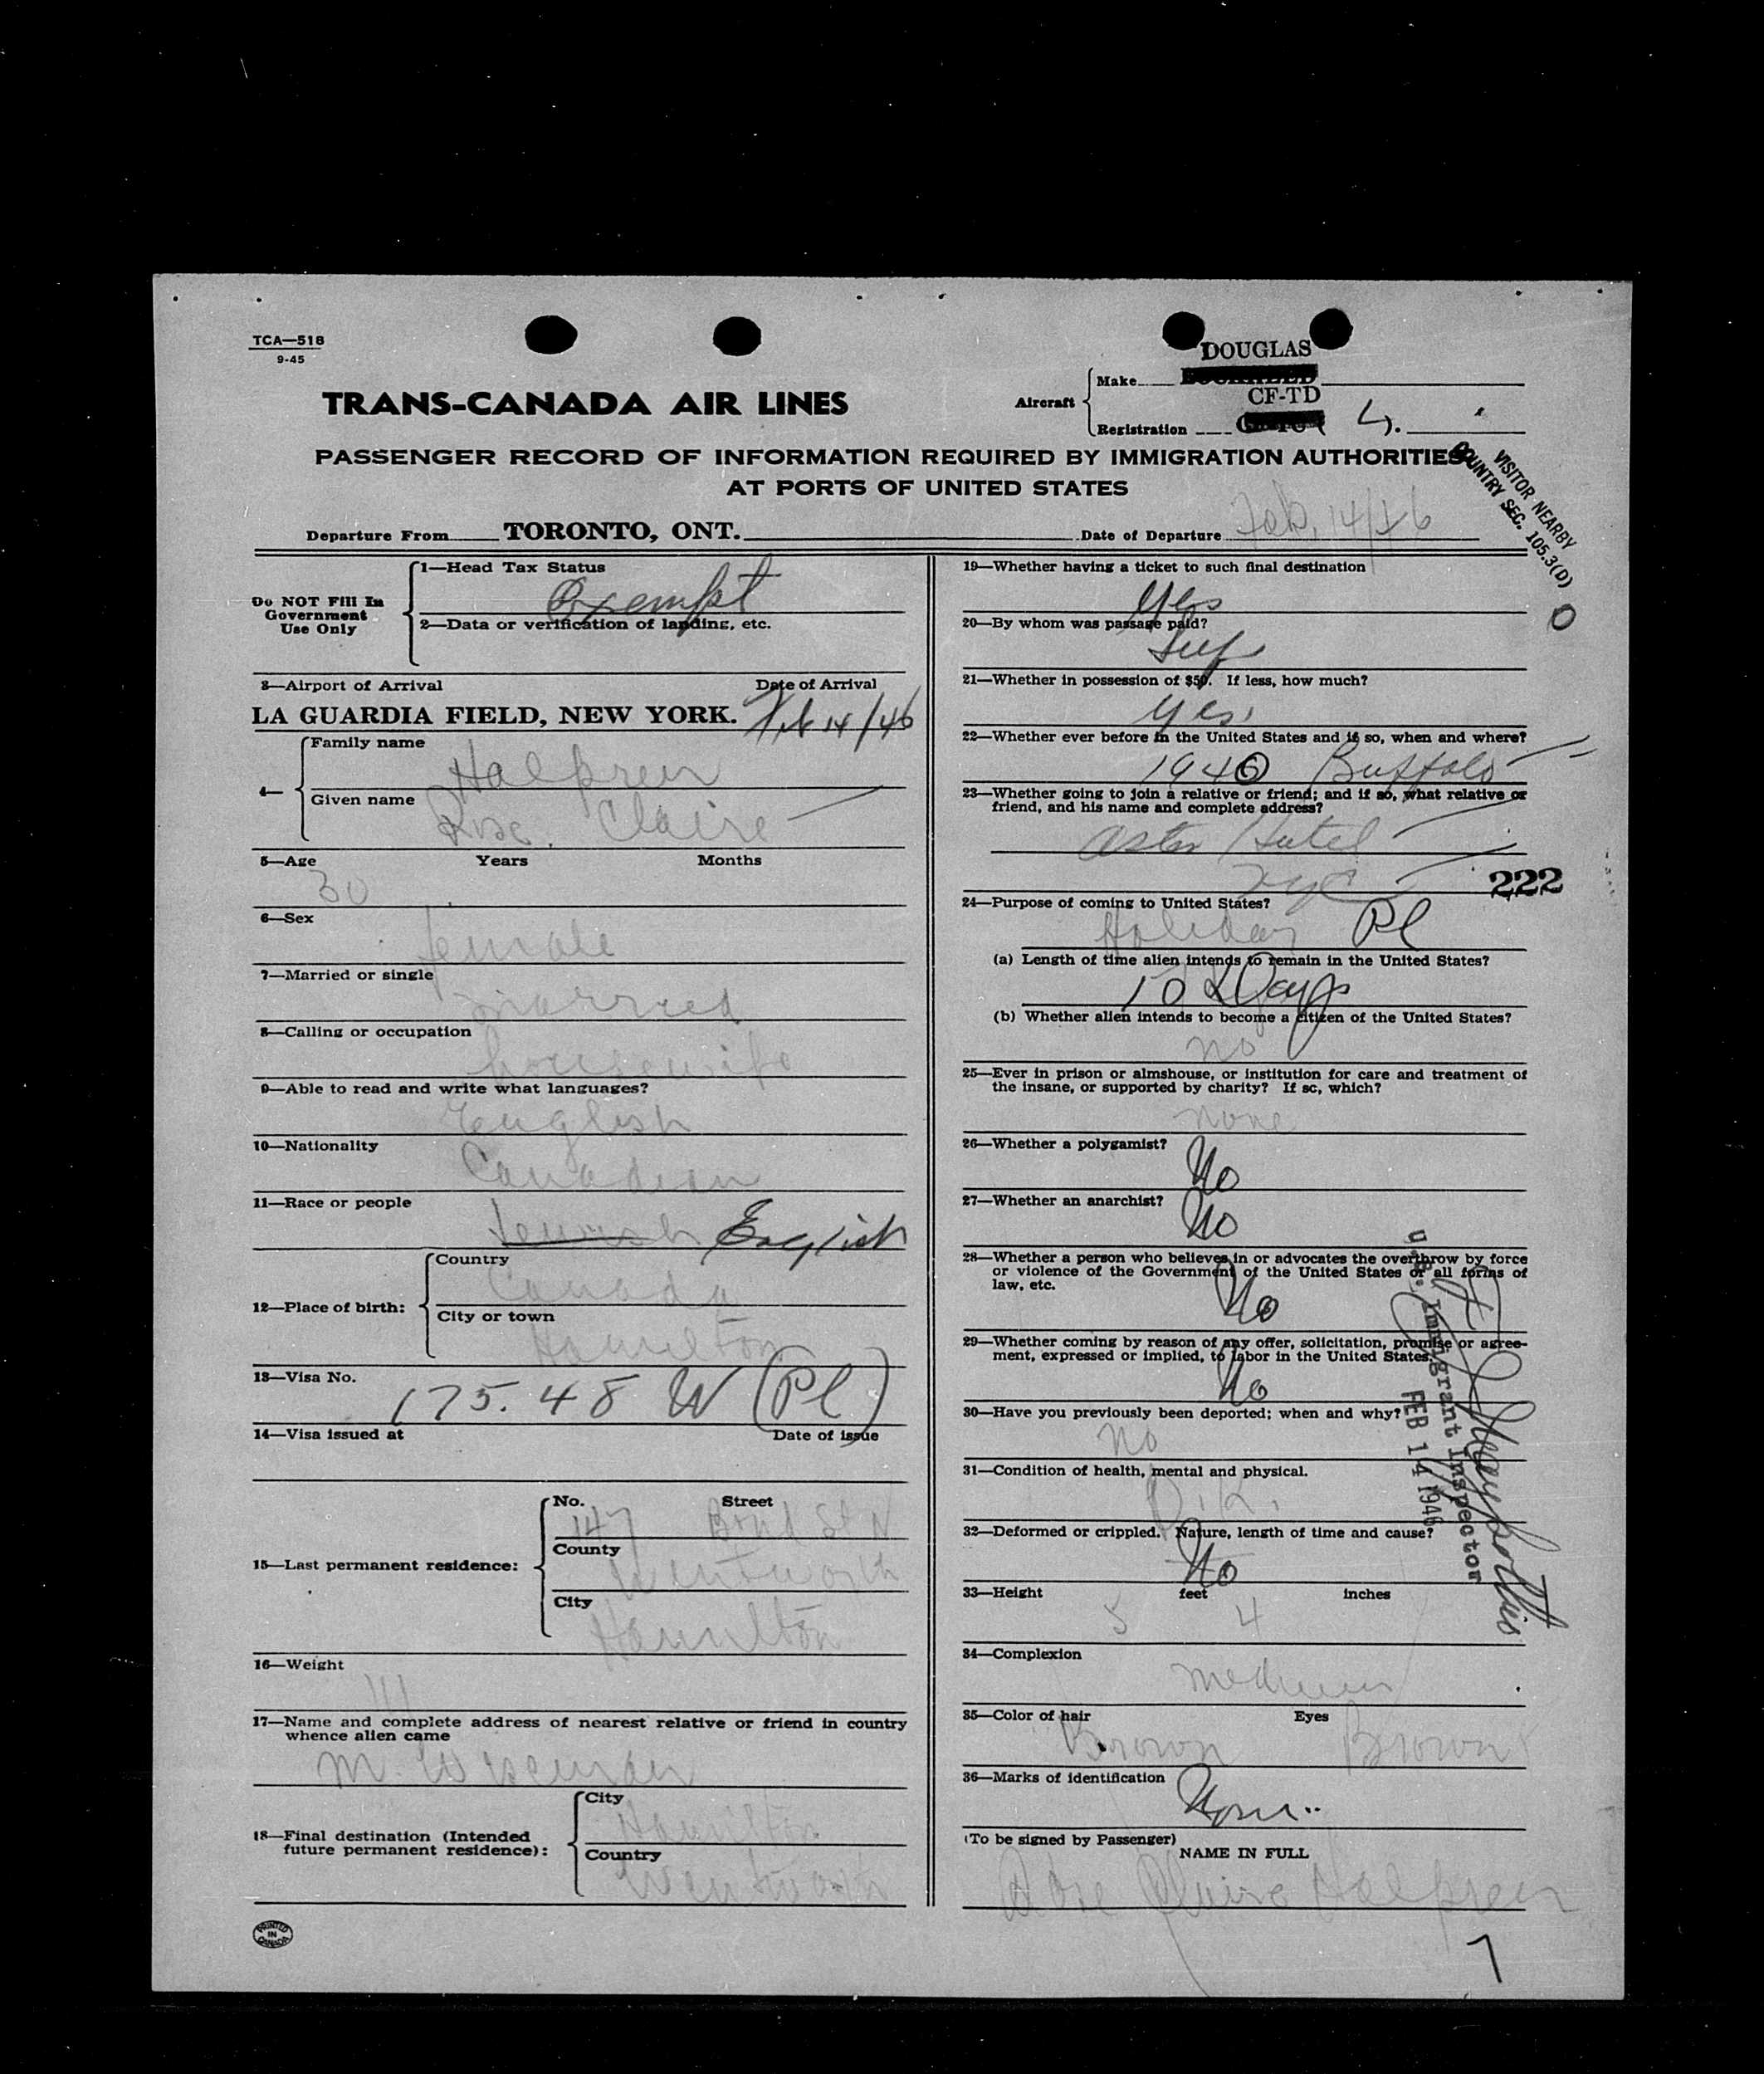 TCA—518
9-45
DOUGLAS
TRANS-CANADA AIR LINES
Aircraft
Make
CF-TD
Registration
PASSENGER RECORD OF INFORMATION REQUIRED BY IMMIGRATION AUTHORITIES
AT PORTS OF UNITED STATES
VISITOR NEARBY
COUNTRY SEC. 105.3(D)
Departure From TORONTO, ONT. Date of Departure Feb. 14/46
Do NOT Fill In
Government
Use Only
1—Head Tax Status
Exempt
2—Data or verification of landing, etc.
3—Airport of Arrival Date of Arrival
LA GUARDIA FIELD, NEW YORK. Feb 14/46
4—
Family name
Halpren
Given name
Rose Claire
5—Age Years Months
30
6—Sex
female
7—Married or single
married
8—Calling or occupation
housewife
9—Able to read and write what languages?
English
10—Nationality
Canadian
11—Race or people
Jewish English
12—Place of birth:
Country
Canada
City or town
Hamilton
13—Visa No.
175.48 W (Pl)
14—Visa issued at Date of issue
15—Last permanent residence:
No. Street
147 Bond St N
County
Wentworth
City
Hamilton
16—Weight
111
17—Name and complete address of nearest relative or friend in country
whence alien came
M. Wiseman
18—Final destination (Intended
future permanent residence):
City
Hamilton
Country
Wentworth
PRINTED
IN
CANADA
19—Whether having a ticket to such final destination
Yes
O
20—By whom was passage paid?
Self
21—Whether in possession of $50. If less, how much?
Yes
22—Whether ever before in the United States and if so, when and where?
1946 Buffalo
23—Whether going to join a relative or friend; and if so, what relative or
friend, and his name and complete address?
Astor Hotel
NYC
222
24—Purpose of coming to United States?
Holiday Pl
(a) Length of time alien intends to remain in the United States?
10 Days
(b) Whether alien intends to become a citizen of the United States?
no
25—Ever in prison or almshouse, or institution for care and treatment of
the insane, or supported by charity? If so, which?
none
26—Whether a polygamist?
No
27—Whether an anarchist?
No
28—Whether a person who believes in or advocates the overthrow by force
or violence of the Government of the United States or all forms of
law, etc.
No
29—Whether coming by reason of any offer, solicitation, promise or agree-
ment, expressed or implied, to labor in the United States.
No
30—Have you previously been deported; when and why?
no
U.S. Immigrant Inspector
FEB 14 1946
31—Condition of health, mental and physical.
O.K.
32—Deformed or crippled. Nature, length of time and cause?
No
33—Height feet inches
5 4
34—Complexion
medium
35—Color of hair Eyes
Brown Brown
36—Marks of identification
None
(To be signed by Passenger)
NAME IN FULL
Rose Claire Halpren
7